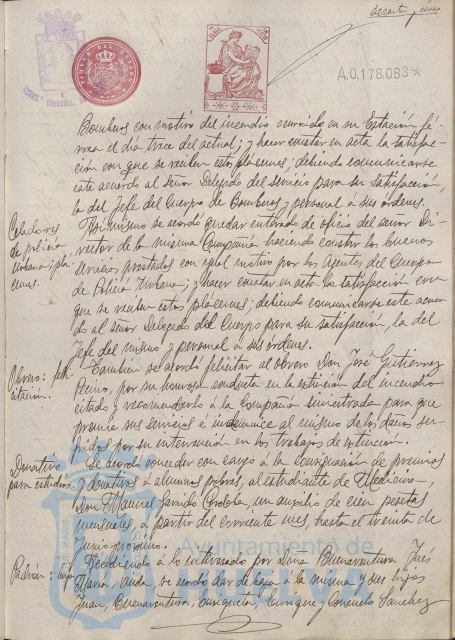 sesenta y cinco
A.0.178.083*
Bomberos con motivo del incendio ocurrido en su Estación fé-
rrea el día trece del actual; y hacer constar en acta la satisfac-
ción con que se reciben estos plácemes; debiendo comunicarse
este acuerdo al Señor Delegado del servicio para su satisfacción,
la del Jefe del Cuerpo de Bomberos y personal a sus órdenes.
Celadores
de policia
urbana: pla-
cemes.
Asi mismo se acordó quedar enterado de oficio del señor Di-
rector de la misma Compañia haciendo constar los buenos
servicios prestados con igual motivo por los Agentes del Cuerpo
de Policia Urbana; y hacer constar en acta la satisfacción con
que se reciben estos plácemes; debiendo comunicarse este acuer-
do al señor Delegado del Cuerpo para su satisfacción, la del
Jefe del mismo y personal a sus ordenes.
Obrero: feli-
citación.
Tambien se acordó felicitar al obrero Don José Gutierrez
por su honrosa conducta en la extinción del incendio
citado y recomendarlo á la Compañia suministrada para que
premie sus servicios é indemnice al mismo de los daños su-
fridos por su intervención en los trabajos de extinción.
Donativo
para estudios.
Se acordó conceder con cargo á la consignación de premios
y donativos á alumnos pobres, al estudiante de Medicina,
Don Manuel Garrido Cordoba, un auxilio de cien pesetas
mensuales, á partir del corriente mes, hasta el treinta de
Junio próximo.
Padrón: baja
Accediendo á lo interesado por Doña Buenaventura
Maria, viuda, se acordó dar de baja á la misma y sus hijos
Juan, Buenaventura, Enriqueta, Enrique y Consuelo Sanchez
Ayuntamiento de
HUELVA